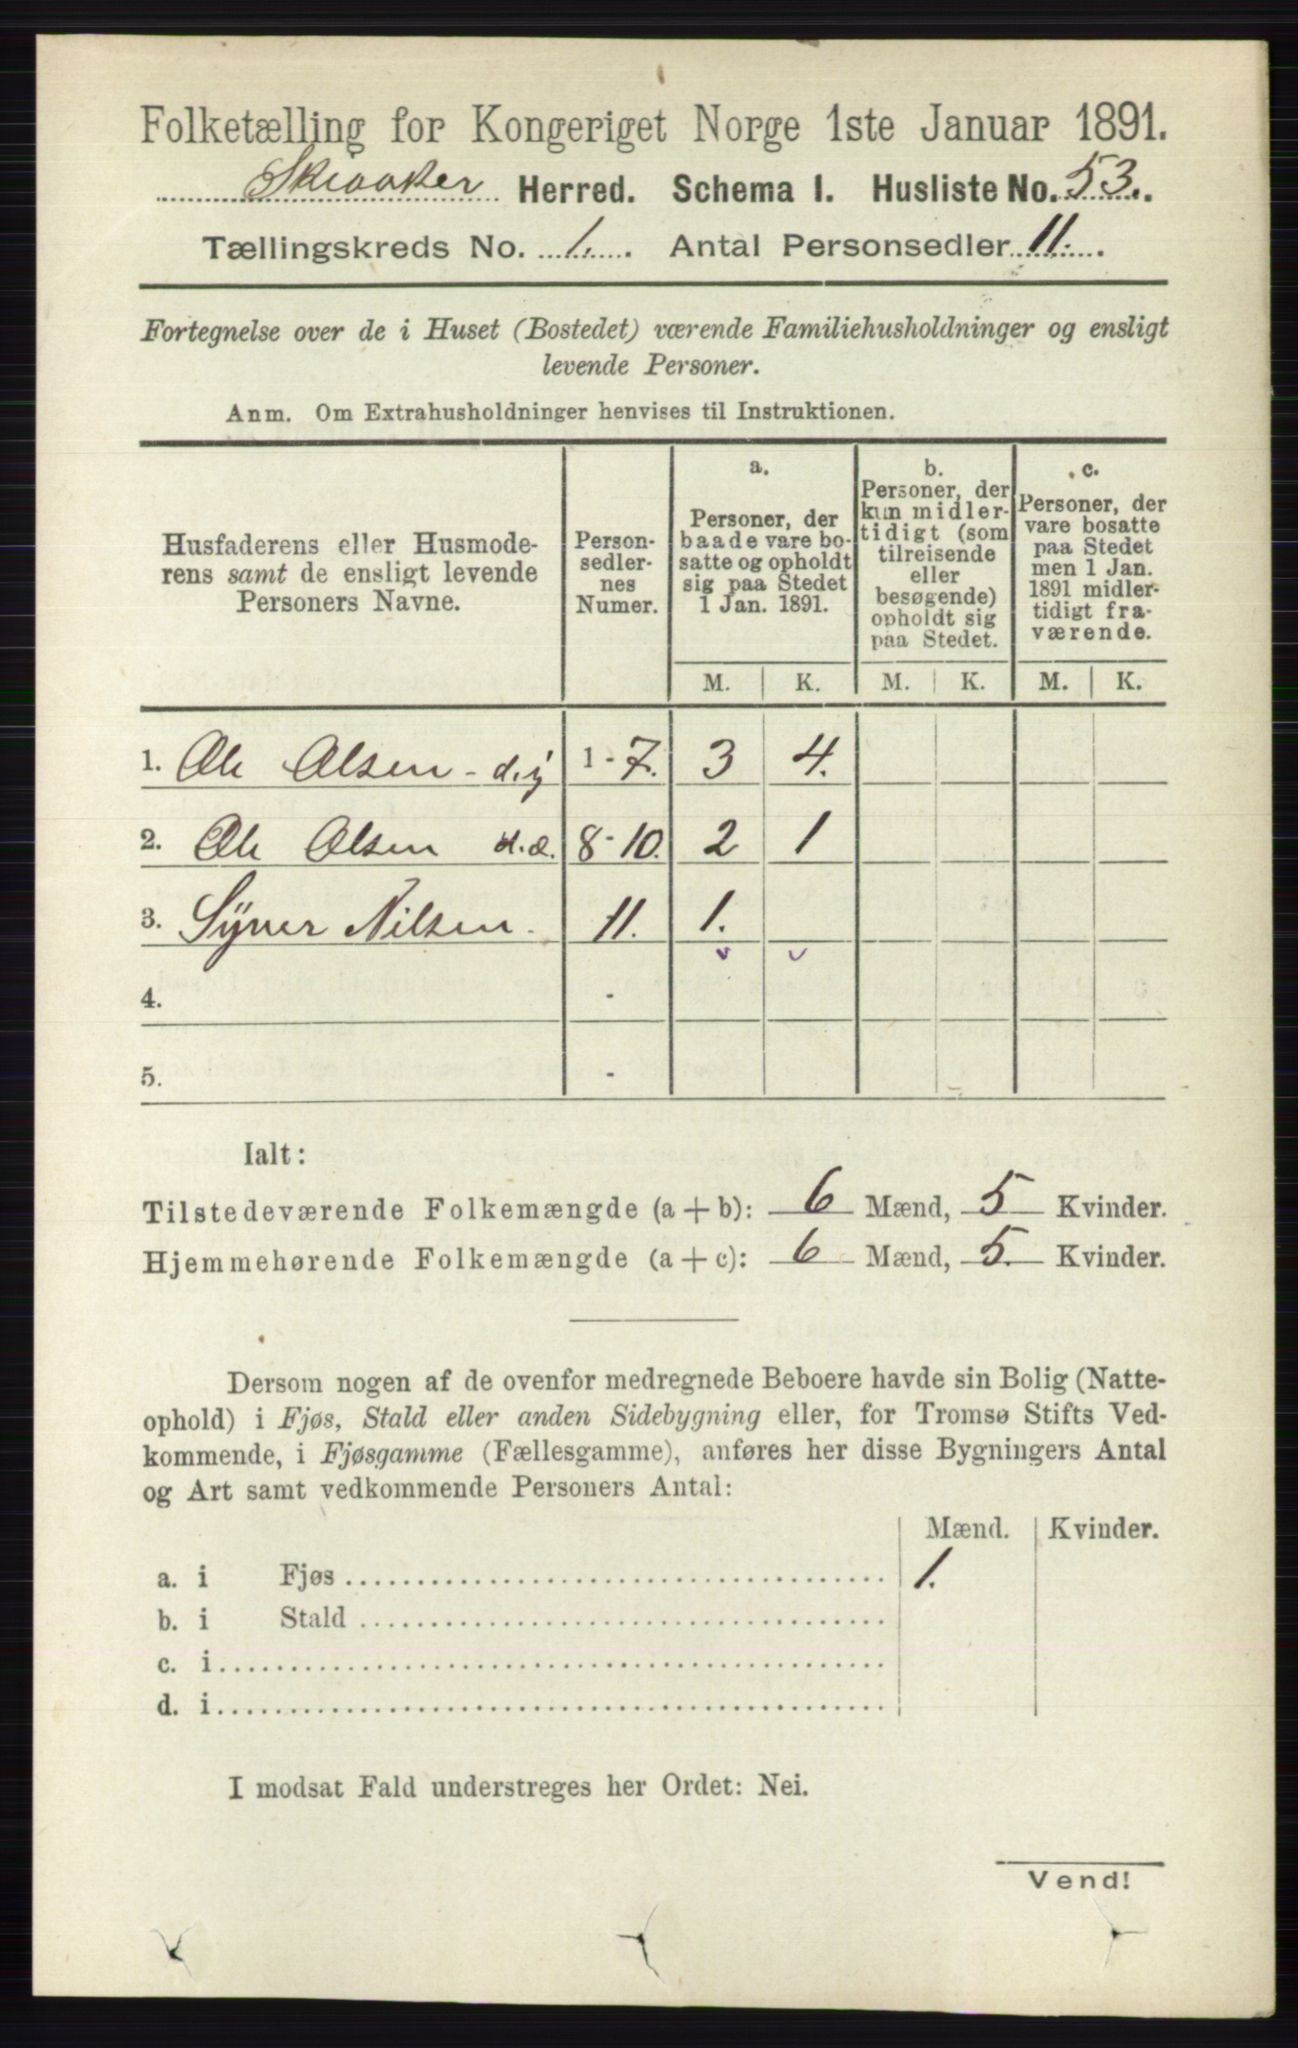 Folketælling for Kongeriget Norge 1ste Januar 1891.
Skiaaker Herred. Schema 1. Husliste No. 53.
Tællingskreds No. 1. Antal Personsedler 11.
Fortegnelse over de i Huset (Bostedet) værende Familiehusholdninger og ensligt
levende Personer.
Anm. Om Extrahusholdninger henvises til Instruktionen.
Husfaderens eller Husmode-
rens samt de ensligt levende
Personers Navne.
Person-
sedler-
nes
Numer.
a.
Personer, der
baade vare bo-
satte og opholdt
sig paa Stedet
1 Jan. 1891.
b.
Personer, der
kun midler-
tidigt (som
tilreisende
eller
besøgende)
opholdt sig
paa Stedet.
c.
Personer, der
vare bosatte
paa Stedet
men 1 Jan.
1891 midler-
tidigt fra-
værende.
M. K. M. K. M. K.
1. Ole Olsen - d.y 1 - 7. 3 4.
2. Ole Olsen d.æ. 8-10. 2 1
3. Syver Nilsen. 11. 1.
4. -
5. -
Ialt:
Tilstedeværende Folkemængde (a + b): 6 Mænd, 5 Kvinder.
Hjemmehørende Folkemængde (a + c): 6 Mænd, 5. Kvinder.
Dersom nogen af de ovenfor medregnede Beboere havde sin Bolig (Natte-
ophold) i Fjøs, Stald eller anden Sidebygning eller, for Tromsø Stifts Ved-
kommende, i Fjøsgamme (Fællesgamme), anføres her disse Bygningers Antal
og Art samt vedkommende Personers Antal:
Mænd. Kvinder.
a. i Fjøs 1.
b. i Stald
c. i
d. i
I modsat Fald understreges her Ordet: Nei.
Vend!